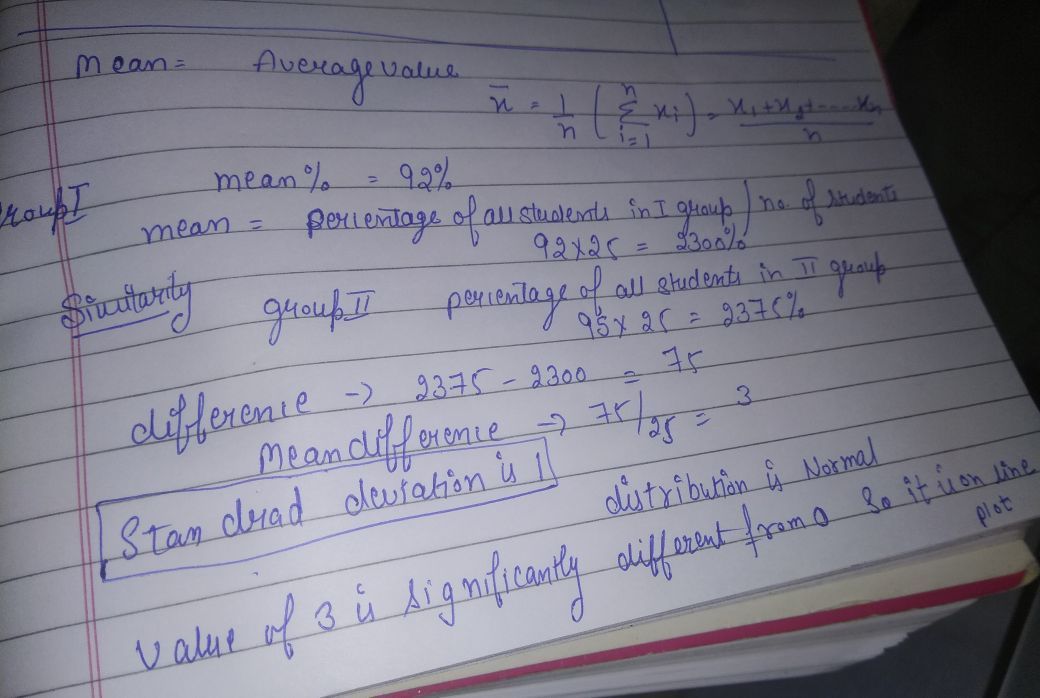 mean = Average value
x̄ = 1/n ( n Σ i=1 xi ) = x1+x2+-----xn / n
mean% = 92%
Group I
mean = percentage of all students in I group / no. of students
92x25 = 2300%
Similarity group II percentage of all students in II group
95x 25 = 2375%
difference -> 2375 - 2300 = 75
mean difference -> 75/25 = 3
Standrad deviation is 1
distribution is Normal
value of 3 is significantly different from 0 so it is on line
plot